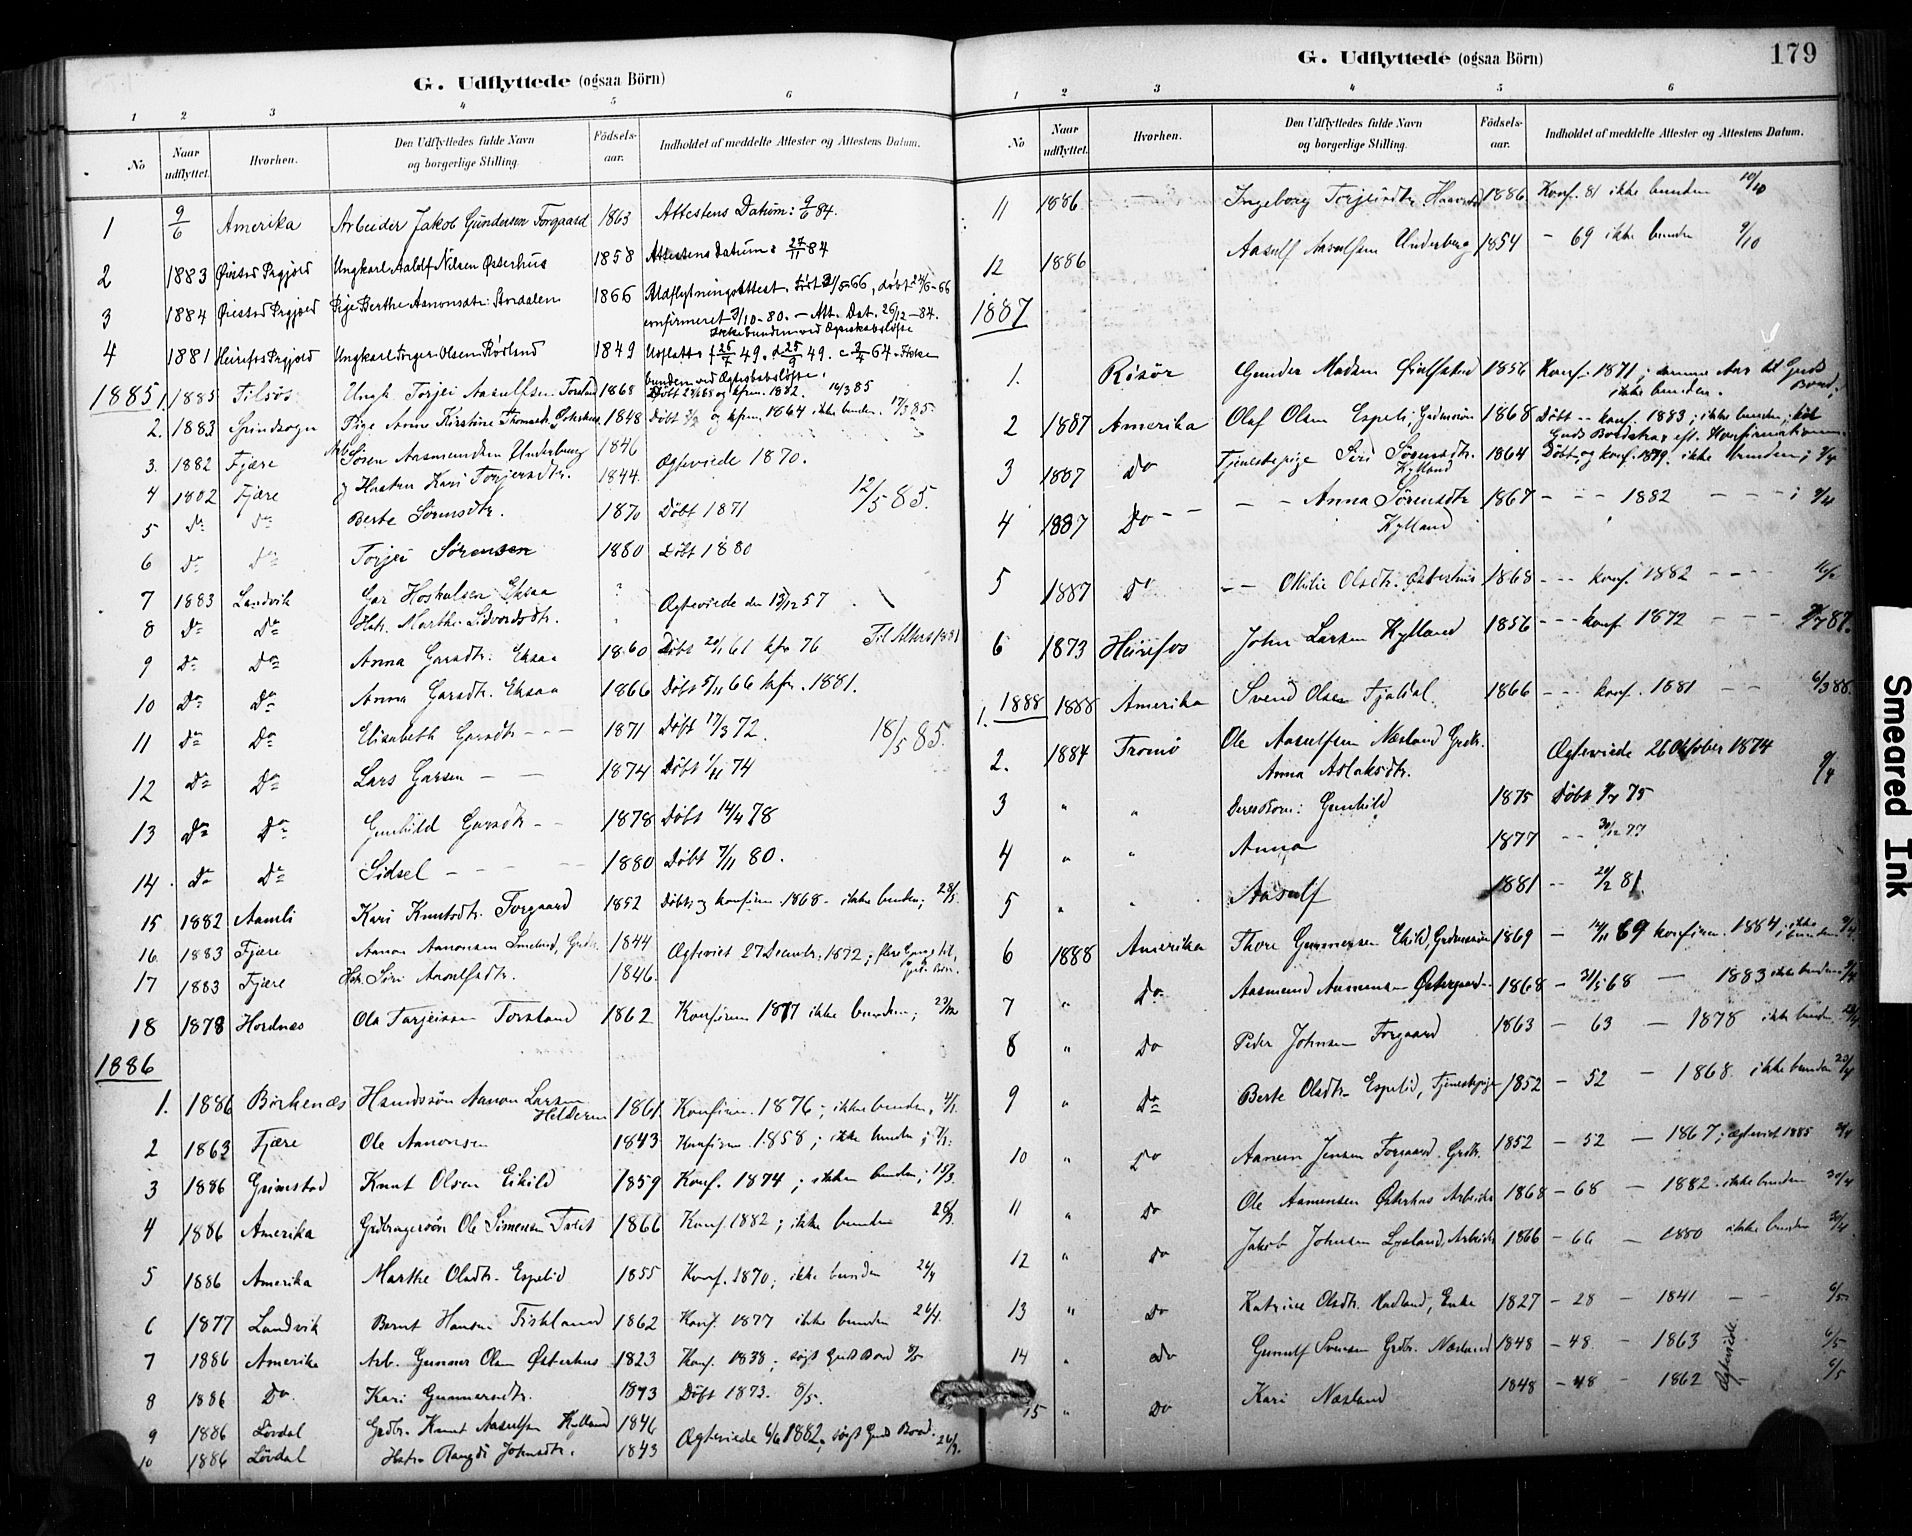 G. Udflyttede (ogsaa Börn)
1 2 3 4 5 6
No Naar udflyttet. Hvorhen. Den Udflyttedes fulde Navn og borgerlige Stilling. Födsels-aar. Indholdet af meddelte Attester og Attestens Datum.
1 9/6 Amerika Arbeider Jakob Gundersen Torgaard 1863 Attestens Datum: 9/6 84.
2 1883 Øiestad Prgjeld Ungkarl Aadolf Nilsen Østerhus 1858 Attestens Datum: 27/11 84
3 1884 Øiestad Prgjeld Pige Berthe Aanonsdtr. Stordalen 1866 Udflytningsattest, født 2/5 66, døbt 24/6-66
confirmeret 3/10-80. – Att. Dat. 26/12-84.
Ikke bunden ved Ægteskabsløfte
4 1881 Heirefos Prgjeld Ungkarl Torger Olsen Rødland 1849 49. 25/9 49. 64. Ikke
bunden ved Ægteskabsløfte.
1885 1. 1885 Tilsøs Ungk. Torjei Aasulfsen 1868 Døbt og kfm. 1882. 14/3 85
2. 1883 Spindsogn Pige Anne Kirstine Thomsdt. Østerhus 1848 Døbt og kfm. 1864 ikke bunden. 17/3 85
3. 1882 Fjære Arb. Søren Aasmundsen Underberg 1846 Ægteviede 1870.
4 1882 Fjære Hustru Kari Torjersdtr. 1844 12/5 85.
5 Do Do Berte Sørensdtr. 1870 Døbt 1871
6 Do Do Torjei Sørensen 1880 Døbt 1880
7 1883 Landvik Gar Hoskulsen Eksaa ? Ægteviede den 13/12 57
8 Do Do Hstr. Marthe Sidvordsdtr.
9 Do Do Anna Garsdtr. Eksaa 1860 Døbt 61 kfm 76 Til Alters 1881
10 Do Do Anna Garsdtr. Eksaa 1866 Døbt 5/11 66 kfm. 1881.
11 Do Do Elisabeth Garsdtr – – 1871 Døbt 17/3 72. 18/5 85.
12 Do Do Lars Garsen – – 1874 Døbt 1/11 74
13 Do Do Gunhild Garsdtr – – 1878 Døbt 14/4 78
14 Do Do Sidsel – – – 1880 Døbt 7/11 80.
15 1882 Aamli Kari Knutsdtr. Torgaard 1852 Døbt og konfirm. 1868 – ikke bunden;
16. 1883 Fjære Aanon Aanonsen Smeland, Grdbr. 1844 Ægteviet 27 Decembr. 1872; flere Gange til
17 1883 Fjære Hstr. Siri Aasulfsdtr. 1846. Guds Bord.
18 1878 Hordnæs Ola Tarjeisen Torsland 1862 Konfirm 1877 ikke bunden;
1886
1. 1886 Birkenæs Hamdssøn Aanon Larsen Helderen 1861 Konfirm. 1876; ikke bunden,
2 1863 Fjære Ole Aanonsen 1843 Konfirm 1858; ikke bunden;
3 1886 Grimstad Knut Olsen Eikild 1859 Konf. 1874; ikke bunden; 15/3.
4 1886 Amerika Grdbrugersøn Ole Simensen Tveit 1866 Konf. 1882; ikke bunden
5 1886 Amerika Marthe Olsdtr. Espelid 1855 Konf. 1870; ikke bunden 26/4
6 1877 Landvik Bernt Hansen Fiskland 1862 Konf. 1877 ikke bunden 26/4.
7 1886 Amerika Arb. Gunner Olsen Østerhus 1823 Konf. 1838; søgt Guds Bord 8/5
8 1886 Do Kari Gunnersdtr. 1873 Døbt 1873. 8/5.
9 1886 Løvdal Grdbr. Knut Aasulfsen Kylland 1846 Ægteviede 6/6 1882, søgt Guds Bord.
10 1886 Løvdal Hstr. Rangdi Johnsdtr. 1843
G. Udflyttede (ogsaa Börn) 179
1 2 3 4 5 6
No Naar udflyttet. Hvorhen. Den Udflyttedes fulde Navn og borgerlige Stilling. Födsels-aar. Indholdet af meddelte Attester og Attestens Datum.
11 1886 – Ingeborg Torjeisdtr. 1886 Konf. 81 ikke bunden 10/10
12 1886 Aasulf Aasulfsen Underberg 1854 – 69 ikke bunden 9/10
1887
1. Risör Gunder Madsen 1856 Konf. 1871; samme Aar til Guds Bord;
ikke bunden.
2 1887 Amerika Olaf Olsen Espeli, Gaardmandssøn 1868 Døbt – konf. 1883; ikke bunden;
Guds Bord eft. Konfirmationen.
3 1887 Do Tjenestepige Siri Sørensdtr. Kylland 1864 Døbt og konf. 1879. ikke bunden;
4 1887 Do – – – Anna Sørensdtr Kylland 1867 – – – 1882 – – – ; 9/4
5 1887 Do – – Othilie Olsdtr. Østerhus 1868 – – – konf. 1882 – – –
6 1873 Heirefos John Larsen Kylland 1856 – – – konf. 1872 – – – 87.
1. 1888 1888 Amerika Svend Olsen Fjaldal. 1866 – – – konf. 1881 – – 6/3 88.
2. 1884 Tromö Ole Aasulfsen Næsland Grdbr.
Anna Aslaksdtr. Ægteviede 26 Oktober 1874 9/4
3 " " Deres Børn: Gunhild 1875 Døbt 75
4 " " Anna 1877 – – 30/12 77
5 " " Aasulf 1881 – – 20/2 81.
6 1888 Amerika Thore Gunnersen Eikild, Grdmdssøn 1869 – 14/11 69 konfirm. 1884; ikke bunden 9/4
7 " Do Aasmund Aamensen Østergaard 1868 – 31/5 68 – 1883 ikke bunden 9/4
8 " Do Peder Johnsen Torgaard 1863 – 63 – 1878 ikke bunden
9 " Do Berte Olsdtr. Espelid, Tjenestepige 1852 – 52 – 1868 ikke bunden
10 " Do Aanen Jensen Torgaard. Grdbr. 1852 – 52 – 1867; ægteviet 1885
11 " Do Ole Aamundsen Østerhus Arbeider 1868 – 68 – 1882. ikke bunden 30/4
12 " Do Jakob Johnsen Lysland, Arbeider 1866 – 66 – 1880 ikke bunden 30/4
13 " Do Katrine Olsdtr. Hadland, Enke 1827 – 28 – 1841 – – 6/5
14 " Do Gunulf Svensen Grdbr. Næsland 1848 – 48 – 1863 Ægteviede. 6/5
15 " Do Kari Næsland 1848 – 48 – 1862 6/5
Smeared Ink